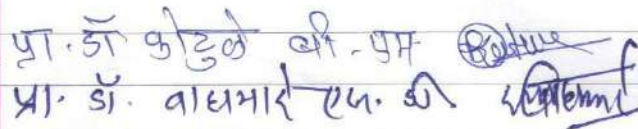 प्रा. डॉ कोटुळे बी. एम
प्रा. डॉ. वाघमारे एल. डी